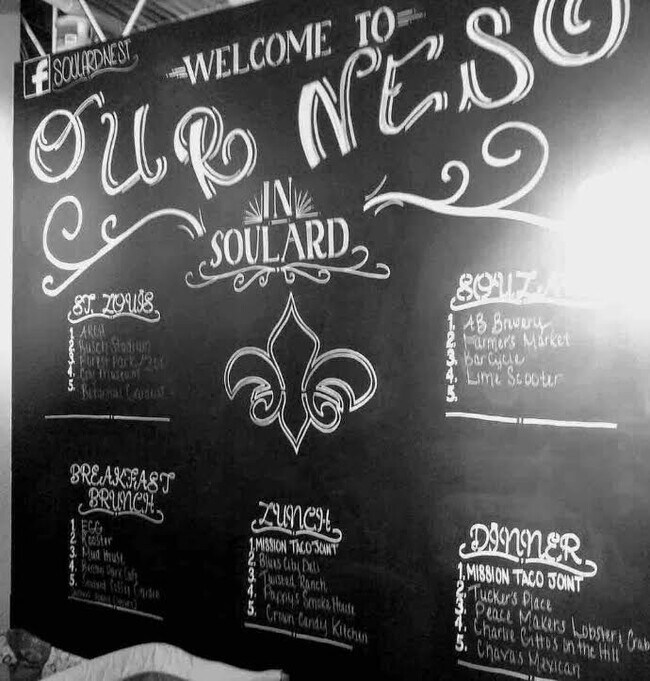 f SOULARDNEST
WELCOME TO
OUR NEST
IN
SOULARD
ST. LOUIS
1. ARCH
2. Busch Stadium
3. Forest Park / Zoo
4. Car Museum
5. Botanical Gardens
SOULARD
1. AB Brewery
2. Farmer's Market
3. Bar Cycle
4. Lime Scooter
5.
BREAKFAST
BRUNCH
1. EGG
2. Rooster
3. Mud House
4. Benton Park Cafe
5. Soulard Coffee Garden
LUNCH
1. MISSION TACO JOINT
2. Blues City Deli
3. Twisted Ranch
4. Pappy's Smoke House
5. Crown Candy Kitchen
DINNER
1. MISSION TACO JOINT
2. Tucker's Place
3. Peace Makers Lobster & Crab
4. Charlie Gitto's on the Hill
5. Chava's Mexican